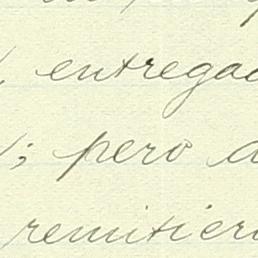 entregad
; pero a
remitiero